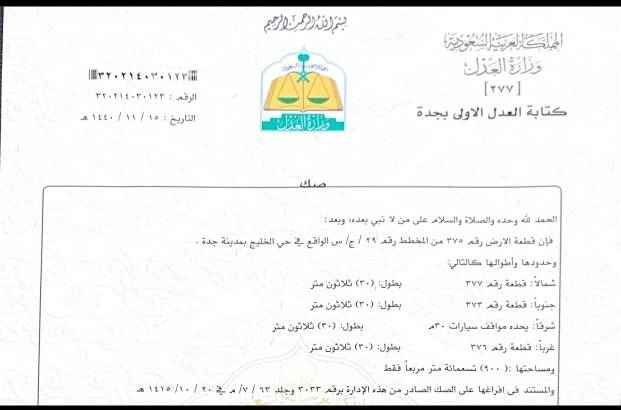 بسم الله الرحمن الرحيم
المملكة العربية السعودية
وزارة العدل
[٢٧٧]
كتابة العدل الاولى بجدة
وزارة العدل
٣٢٠٢١٤٠٣٠١٢٣
الرقم : ٣٢٠٢١٤٠٣٠١٢٣
التاريخ : ١٥ / ١١ / ١٤٤٠ هـ
صك
الحمد لله وحده والصلاة والسلام على من لا نبي بعده، وبعد:
فإن قطعة الارض رقم ٣٧٥ من المخطط رقم ٢٩ / ج/ س الواقع في حي الخليج بمدينة جدة .
وحدودها وأطوالها كالتالي:
شمالاً: قطعة رقم ٣٧٧ بطول: (٣٠) ثلاثون متر
جنوباً: قطعة رقم ٣٧٣ بطول: (٣٠) ثلاثون متر
شرقاً: يحده مواقف سيارات ٣٠م بطول: (٣٠) ثلاثون متر
غرباً: قطعة رقم ٣٧٦ بطول: (٣٠) ثلاثون متر
ومساحتها :( ٩٠٠ ) تسعمائة متر مربعاً فقط
والمستند في افراغها على الصك الصادر من هذه الإدارة برقم ٣٠٣٣ وجلد ٦٣ /٧/ م في ٢٠ / ١٠/ ١٤٢٥ هـ